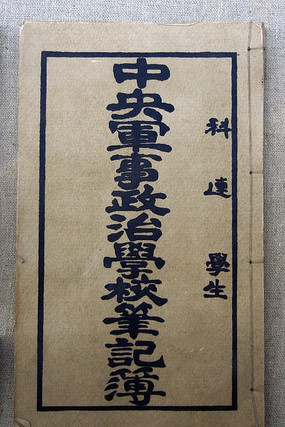 科 連 學生
中央軍事政治學校筆記簿